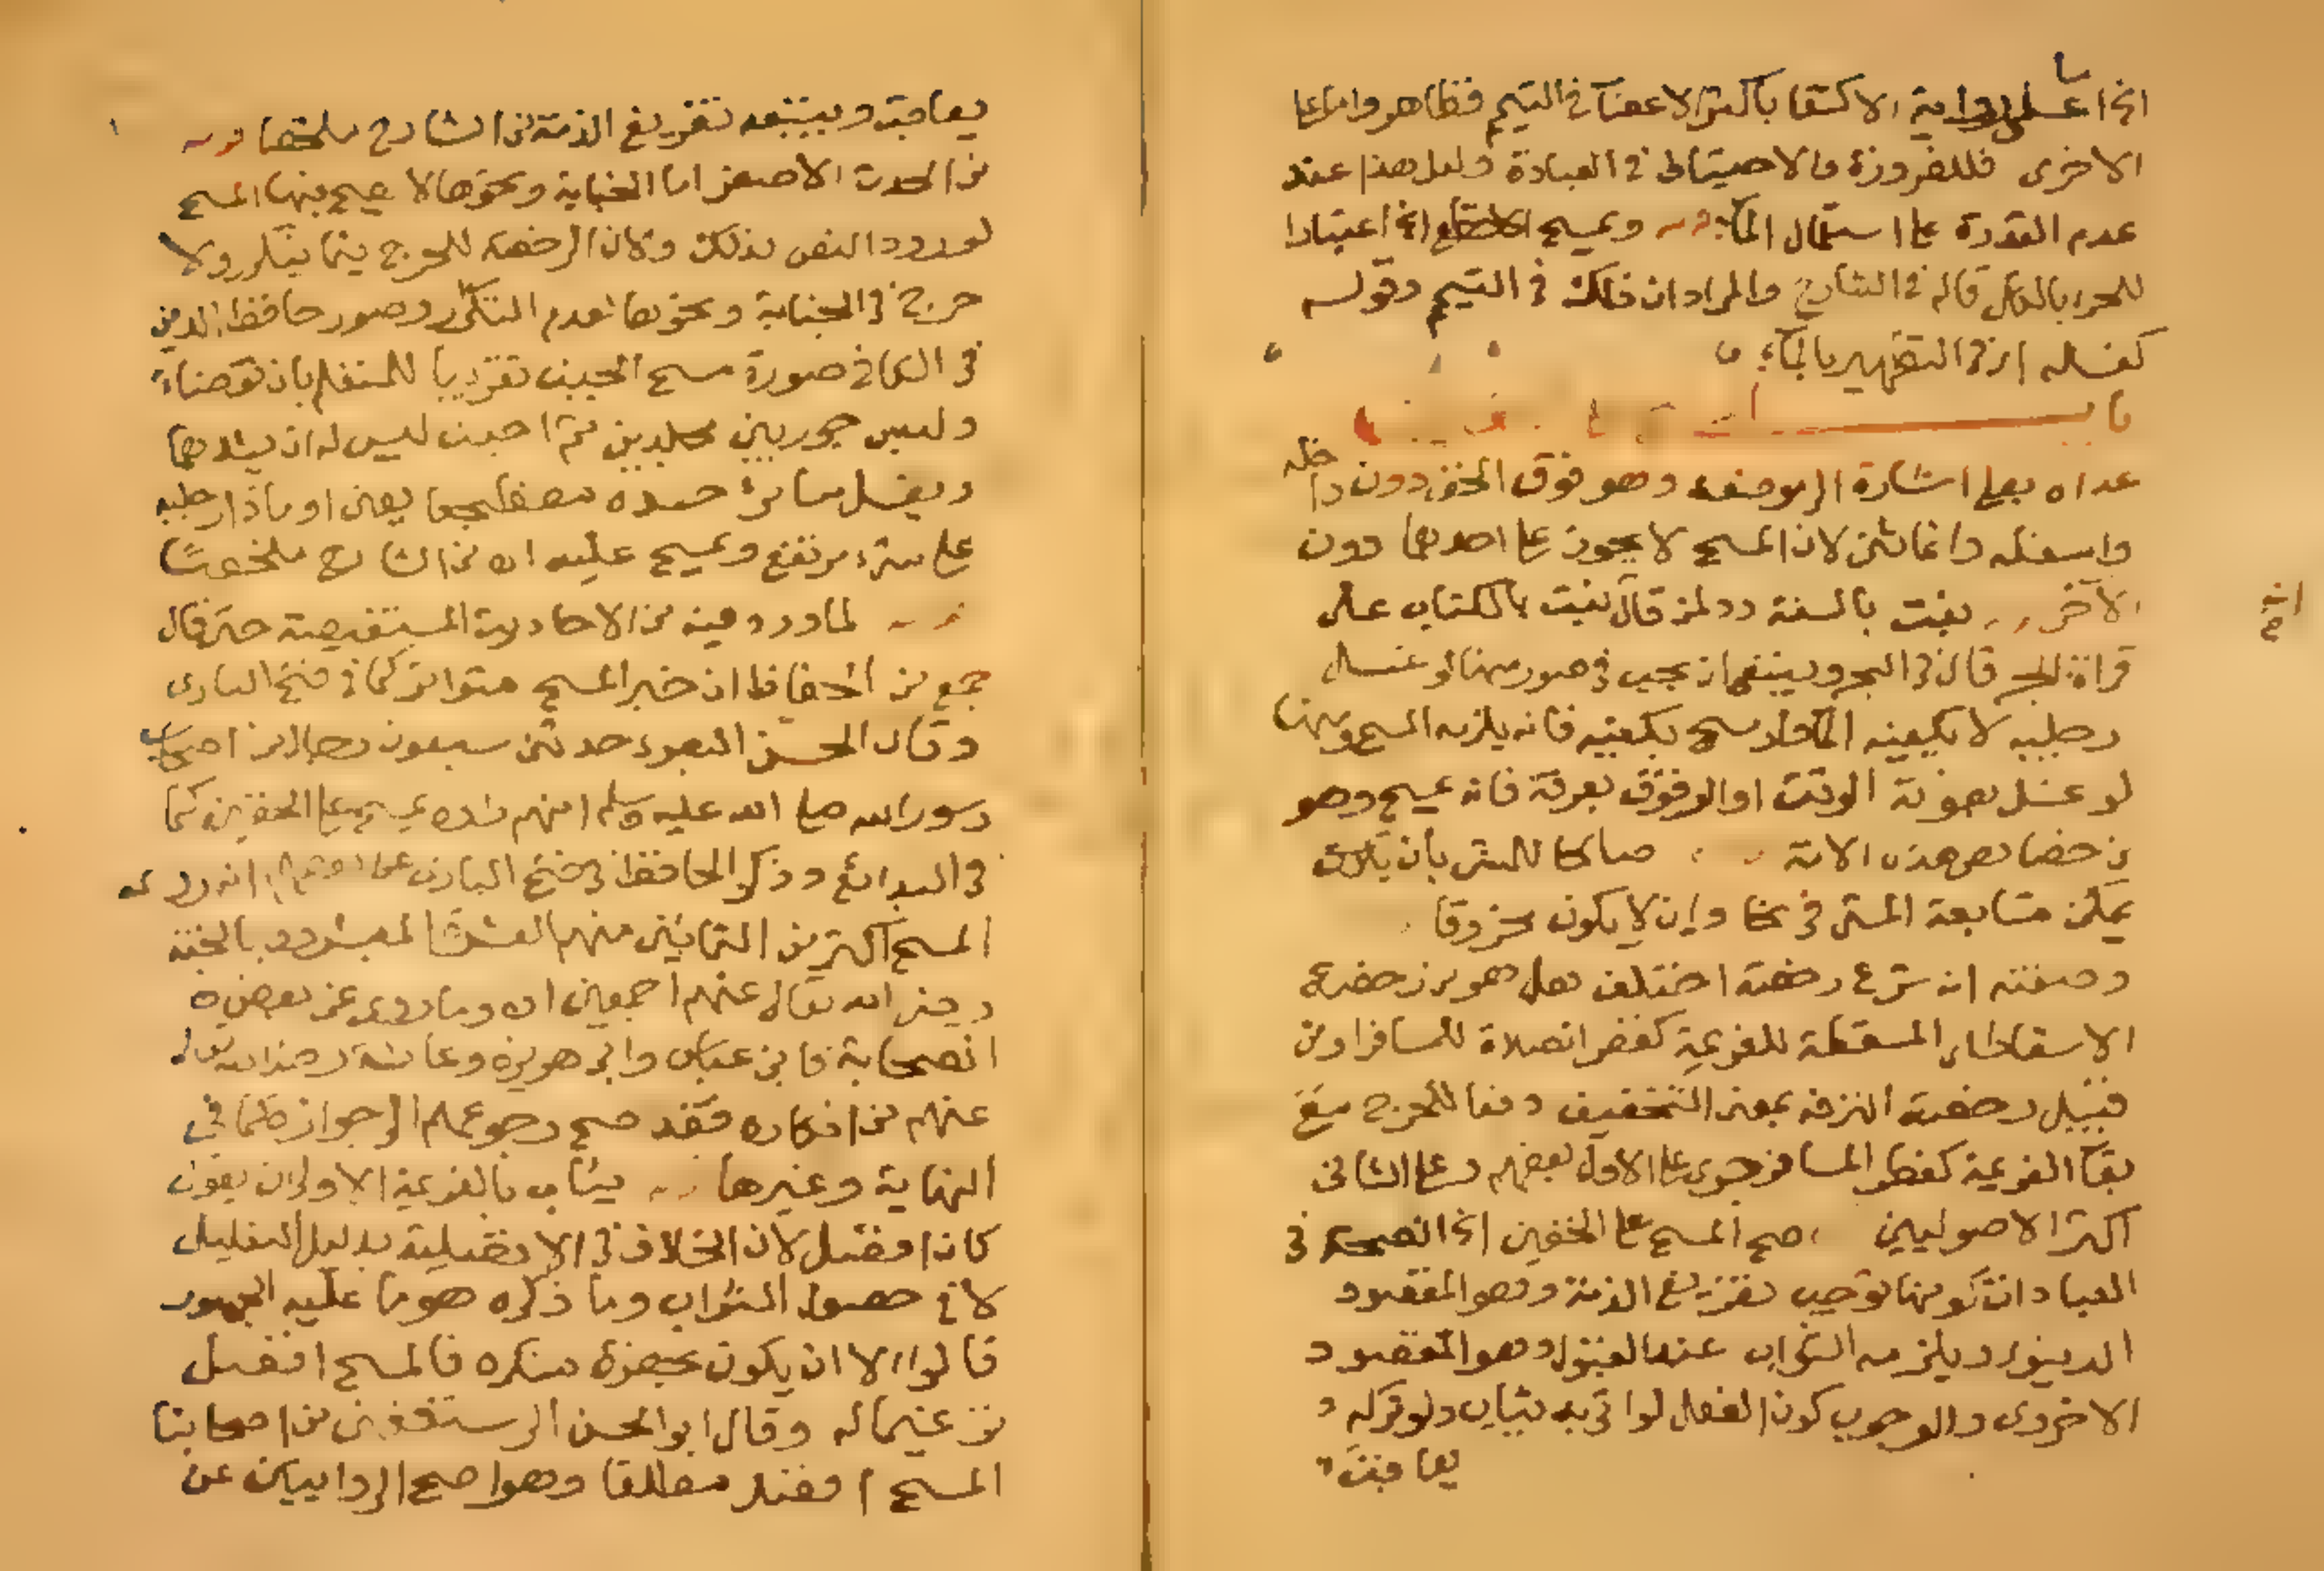 اخ اما على رواية الاكتفا باكثر الاعضآ في التيمم فظاهر واما على
الاخرى فللضرورة والاحتياط في العبادة ولعل هذا عند
عدم القدرة على استعمال المآء ويمسح الاقطع اخ اعتبارا
للجزء بالكل قاله في الشارح والمراد ان ذلك في التيمم وقوله
كغسله اي في التطهير بالمآء
باب
عداه بعلى اشارة الى موضعه وهو فوق الخف دون داخله
واسفله وانما ثنى لان المسح لا يجوز على احدهما دون
الآخر ثبت بالسنة رد لمن قال ثبت بالكتاب على
قراة الجر قال في البحر وينبغي ان يجب في صور منها لو غسل
رجليه لا يكفيه المآ ولو مسح يكفيه فانه يلزمه المسح ومنها
لو غسل يفوته الوقت او الوقوف بعرفة فانه يمسح وهو
من خصايص هذه الامة صالحا للمشي بان يكون
يمكن متابعة المشي فيه وان لا يكون مخروقا
وصفته انه شرع رخصة اختلف هل هو من رخصة
الاسقاط اي المسقطة للعزيمة كقصر الصلاة للمسافر او من
قبيل رخصة الترفه بمعنى التخفيف دفعا للحرج مع
بقآ العزيمة كفطر المسافر جرى على الاول بعضهم وعلى الثاني
اكثر الاصوليين صح المسح على الخفين اخ الصحة في
العبادات كونها توجب تفريغ الذمة وهو المقصود
الدنيوي ويلزمه الثواب عند القبول وهو المقصود
الاخروي والوجوب كون الفعل لو اتى به يثاب ولو تركه
يعاقب
يعاقب ويتبعه تفريغ الذمة من الشارح ملخصا
من الحدث الاصغر اما الجنابة ونحوها لا يصح فيها المسح
لورود النص بذلك ولان الرخصة للحرج فيما يتكرر ولا
حرج في الجنابة ونحوها لعدم التكرر وصور حافظ الدين
في الكافي صورة مسح الجنب تقريبا للمتعلم بان توضا
ولبس جوربين مجلدين ثم اجنب ليس له ان يشدهما
ويغسل سائر جسده مضطجعا يعني او مادا رجليه
على شيء مرتفع ويمسح عليه اه من الشارح ملخصا
لما ورد فيه من الاحاديث المستفيضة حتى قال
جمع من الحفاظ ان خبر المسح متواتر كما في فتح الباري
وقال الحسن البصري حدثني سبعون رجلا من اصحاب
رسول الله صلى الله عليه وسلم انهم راوه يمسح على الخفين كما
في البدائع وذكر الحافظ في فتح الباري عن انه روى
المسح اكثر من الثمانين منهم العشرة المبشرون بالجنة
رضي الله تعالى عنهم اجمعين اه وما روى عن بعض
الصحابة كابن عباس وابي هريرة وعائشة رضي الله تعالى
عنهم من انكاره فقد صح رجوعهم الى جوازه كما في
النهاية وغيرها يثاب بالعزيمة الاولى ان يقول
كان افضل لان الخلاف في الافضلية بدليل التعليل
لا في حصول الثواب وما ذكره هو ما عليه الجمهور
قالوا الا ان يكون بحضرة منكره فالمسح افضل
ترغيما له وقال ابو الحسن الرستغفني من اصحابنا
المسح افضل مطلقا وهو اصح الروايتين عن